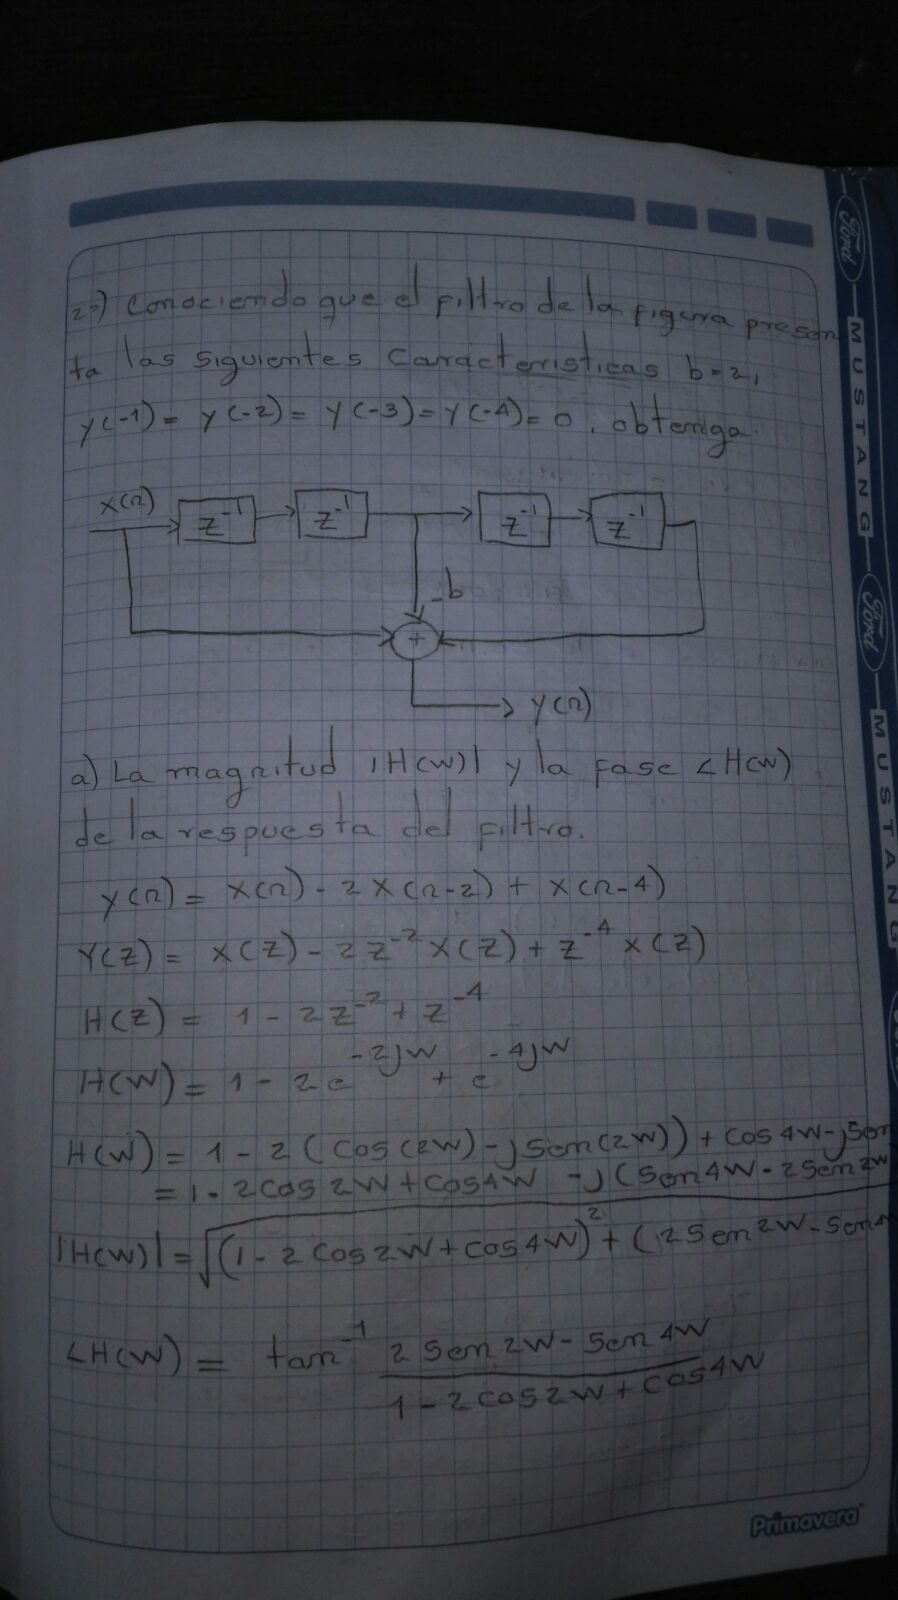 2-) Conociendo que el filtro de la figura presen
ta las siguientes características b=2,
y(-1)= y(-2)= y(-3)= y(-4)= 0, obtenga.
X(n)
z⁻¹
z⁻¹
z⁻¹
z⁻¹
-b
+
Y(n)
a) La magnitud |H(w)| y la fase ∠H(w)
de la respuesta del filtro.
Y(n) = X(n) - 2X(n-2) + X(n-4)
Y(z) = X(z) - 2z⁻² X(z) + z⁻⁴ X(z)
H(z) = 1 - 2z⁻² + z⁻⁴
H(w) = 1 - 2e^-2jw + e^-4jw
H(w) = 1 - 2(cos(2w) - jsen(2w)) + cos4w - jsen
= 1 - 2cos2w + cos4w - j(sen4w - 2sen2w
|H(w)| = √(1 - 2cos2w + cos4w)² + (2sen2w - sen4
∠H(w) = tan⁻¹ 2sen2w - sen4w
1 - 2cos2w + cos4w
Primavera
Ford
MUSTANG
Ford
MUSTANG